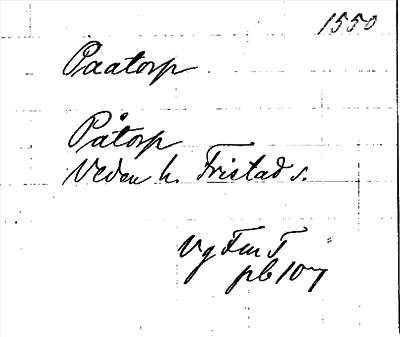 1550
Paatorp
Påtorp
Veden h. Fristad s.
Vg Fm T
pb 107